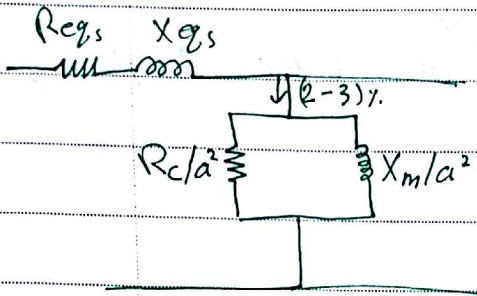 Reqs Xeqs
(2-3)%
Rc/a² Xm/a²